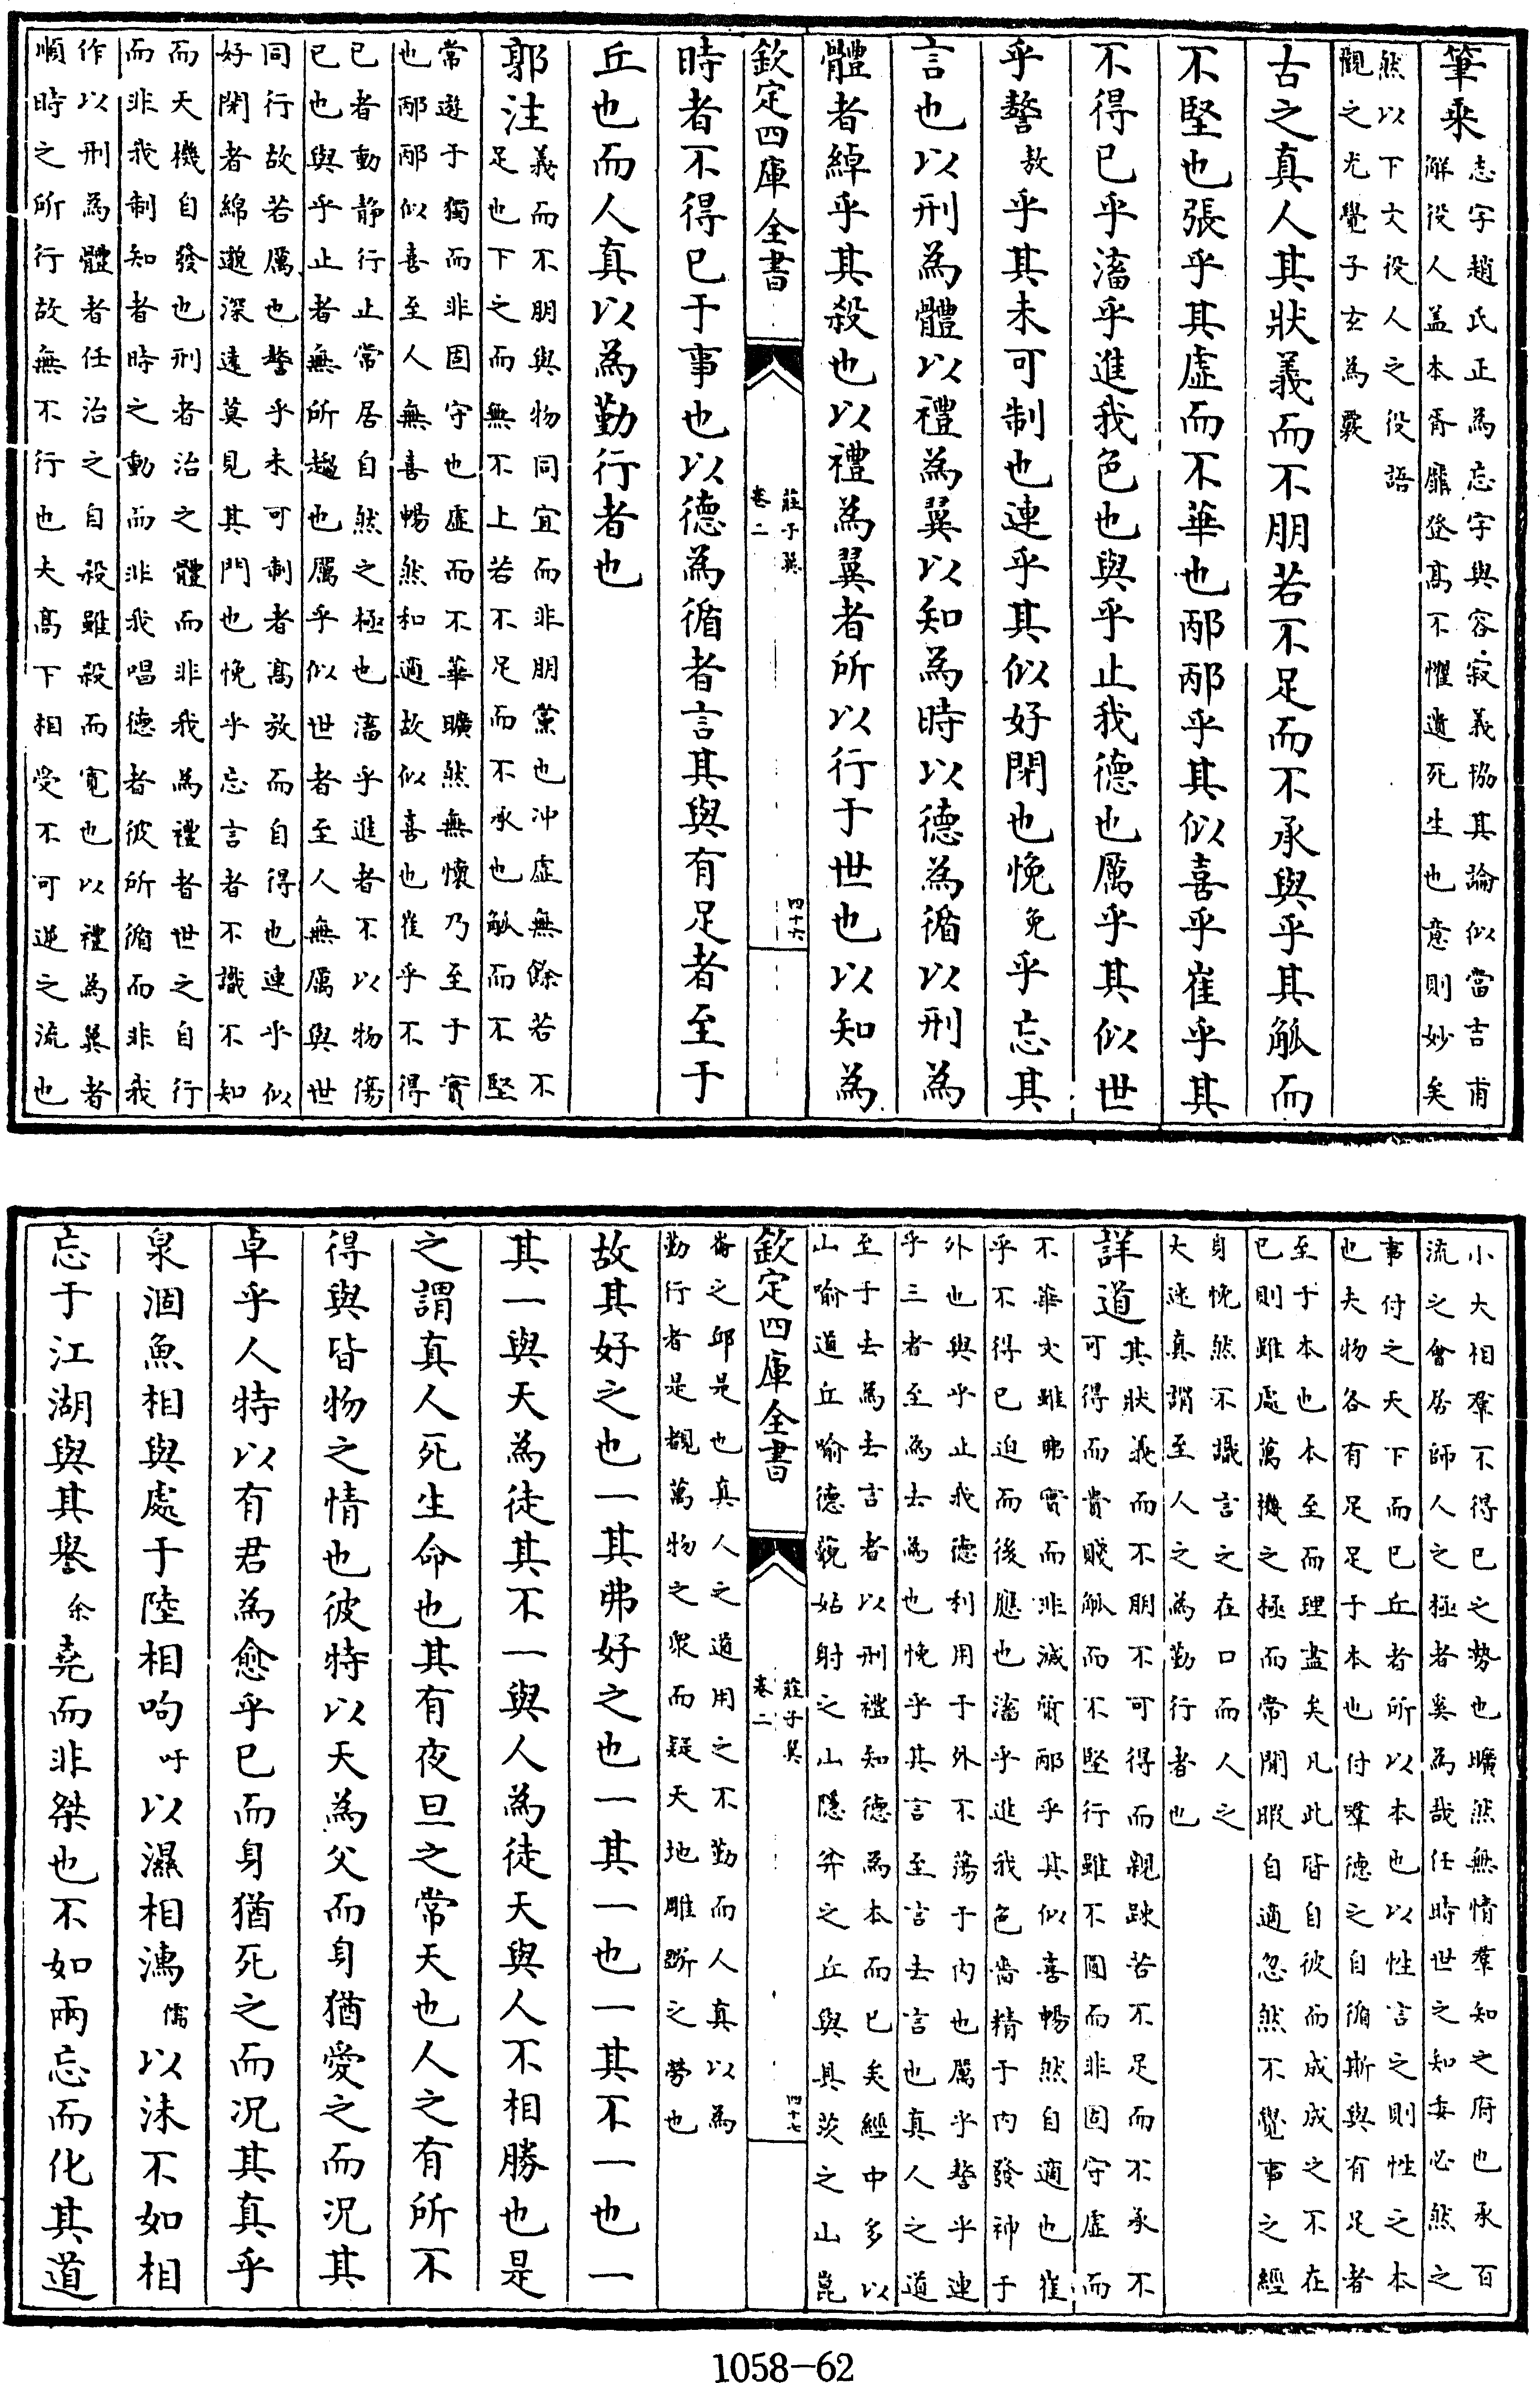 筆乘志字趙氏正為忘字與容寂義協其論似當吉甫
解役人盖本胥靡登髙不懼遺死生也意則妙矣
然以下文役人之役語
觀之尤覺子𤣥為覈
古之真人其狀義而不朋若不足而不承與乎其觚而
不堅也張乎其虛而不華也邴邴乎其似喜乎崔乎其
不得已乎滀乎進我色也與乎止我德也厲乎其似世
乎謷敖乎其未可制也連乎其似好閉也悗免乎忘其
言也以刑為體以禮為翼以知為時以德為循以刑為
體者綽乎其殺也以禮為翼者所以行于世也以知為
欽定四庫全書
莊子翼
卷二
四十六
時者不得已于事也以德為循者言其與有足者至于
丘也而人真以為勤行者也
郭注義而不朋與物同宜而非朋黨也冲虛無餘若不
足也下之而無不上若不足而不承也觚而不堅
常遊于獨而非固守也虛而不華曠然無懷乃至于實
也邴邴似喜至人無喜暢然和適故似喜也崔乎不得
已者動静行止常居自然之極也滀乎進者不以物傷
已也與乎止者無所趨也厲乎似世者至人無厲與世
同行故若厲也謷乎未可制者髙放而自得也連乎似
好閉者綿邈深遠莫見其門也悗乎忘言者不識不知
而天機自發也刑者治之體而非我為禮者世之自行
而非我制知者時之動而非我唱德者彼所循而非我
作以刑為體者任治之自殺雖殺而寛也以禮為翼者
順時之所行故無不行也夫髙下相受不可逆之流也
小大相羣不得已之勢也曠然無情羣知之府也承百
流之會居師人之極者奚為哉任時世之知委必然之
事付之天下而已丘者所以本也以性言之則性之本
也夫物各有足足于本也付羣德之自循斯與有足者
至于本也本至而理盡矣凡此皆自彼而成成之不在
已則雖處萬機之極而常閒暇自適忽然不覺事之經
身悗然不識言之在口而人之
大迷真謂至人之為勤行者也
詳道其狀義而不朋不可得而親踈若不足而不承不
可得而貴賤觚而不堅行雖不圓而非固守虛而
不華文雖弗實而非滅質邴乎其似喜暢然自適也崔
乎不得已迫而後應也滀乎進我色嗇精于内發神于
外也與乎止我德利用于外不蕩于内也厲乎謷乎連
乎三者至為去為也悗乎其言至言去言也真人之道
至于去為去言者以刑禮知德為本而已矣經中多以
山喻道丘喻德藐姑射之山隱弅之丘與具茨之山崑
欽定四庫全書
莊子翼
卷二
四十七
崙之邱是也真人之道用之不勤而人真以為
勤行者是覩萬物之衆而疑天地雕斵之勞也
故其好之也一其弗好之也一其一也一其不一也一
其一與天為徒其不一與人為徒天與人不相勝也是
之謂真人死生命也其有夜旦之常天也人之有所不
得與皆物之情也彼特以天為父而身猶愛之而况其
卓乎人特以有君為愈乎已而身猶死之而况其真乎
泉涸魚相與處于陸相呴吁以濕相濡儒以沫不如相
忘于江湖與其譽余堯而非桀也不如兩忘而化其道
1058-62